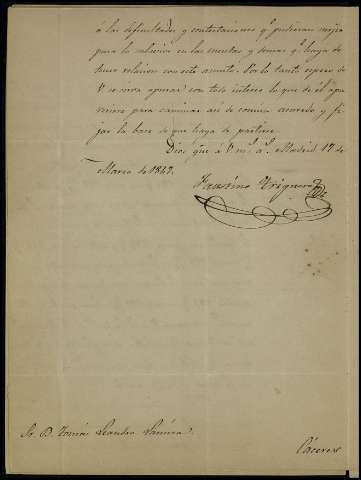 á las dificultades y contestaciones q.e pudieran
para la en las cuentas y demas q.e haya de
tener relacion con este asunto. Por lo tanto espero de
V. se sirva con todo interes lo que de él
para caminar asi de comun acuerdo y fi-
jar la base de que haya de partirse.
Dios gue á V. m.s a.s Madrid 17 de
Marzo de 1847.
Faustino Triguero
Sr. D. Tomás Leandro
Cáceres